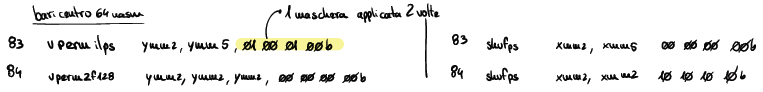 baricentro 64 nasm
1 maschera applicata 2 volte
83 vpermilps ymm2, ymm5, 01 00 01 00b
84 vperm2f128 ymm2, ymm2, ymm2, 00 00 00 00b
83 shufps xmm2, xmm5 00 00 00 00b
84 shufps xmm2, xmm2 10 10 10 10b